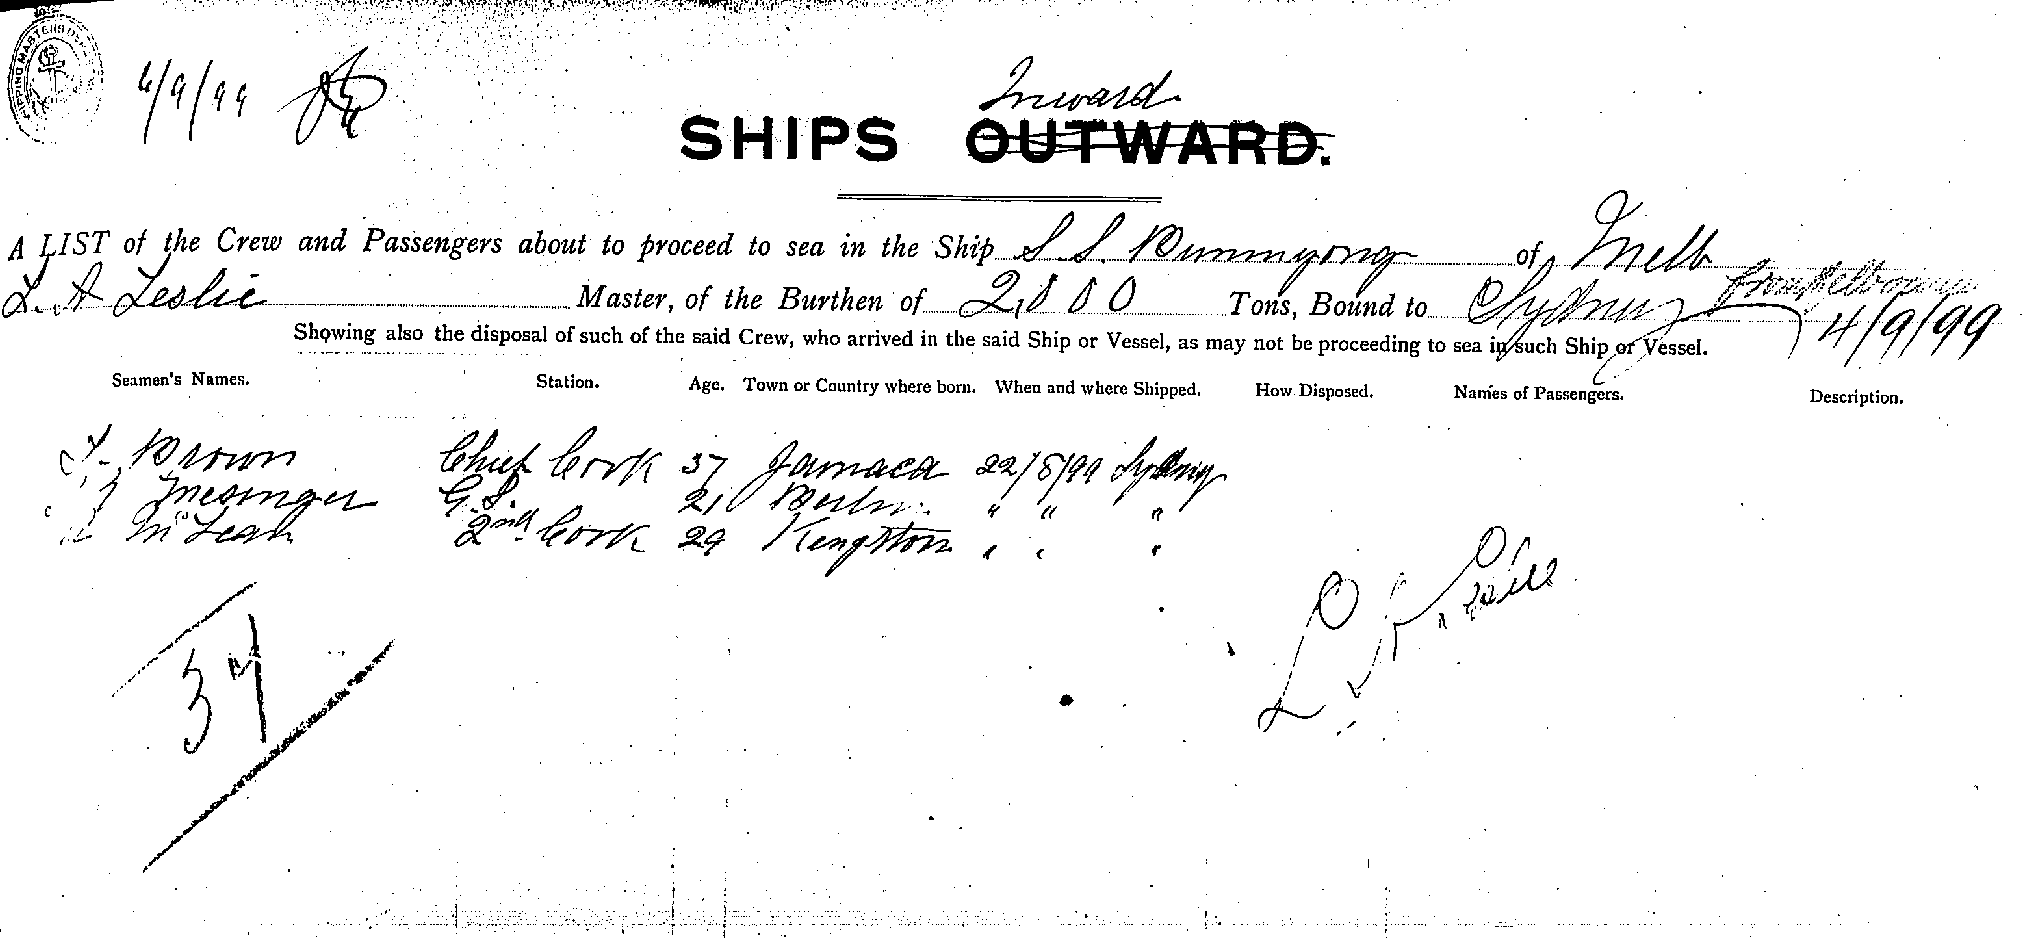 SHIPPING MASTERS DE
6/9/99
Inward
SHIPS OUTWARD.
A LIST of the Crew and Passengers about to proceed to sea in the Ship S.S. Bunninyong of Melb
L. A Leslie Master, of the Burthen of 2,000 Tons, Bound to Sydney from Melbourne
4/9/99
Showing also the disposal of such of the said Crew, who arrived in the said Ship or Vessel, as may not be proceeding to sea in such Ship or Vessel.
Seamen's Names. Station. Age. Town or Country where born. When and where Shipped. How Disposed. Names of Passengers. Description.
Brown Chief Cook 37 Jamaca 22/8/99 Sydney
Mesinger G.S. 21 Berlin " " "
McLean 2nd Cook 29 Kingston " " "
L. A. Leslie